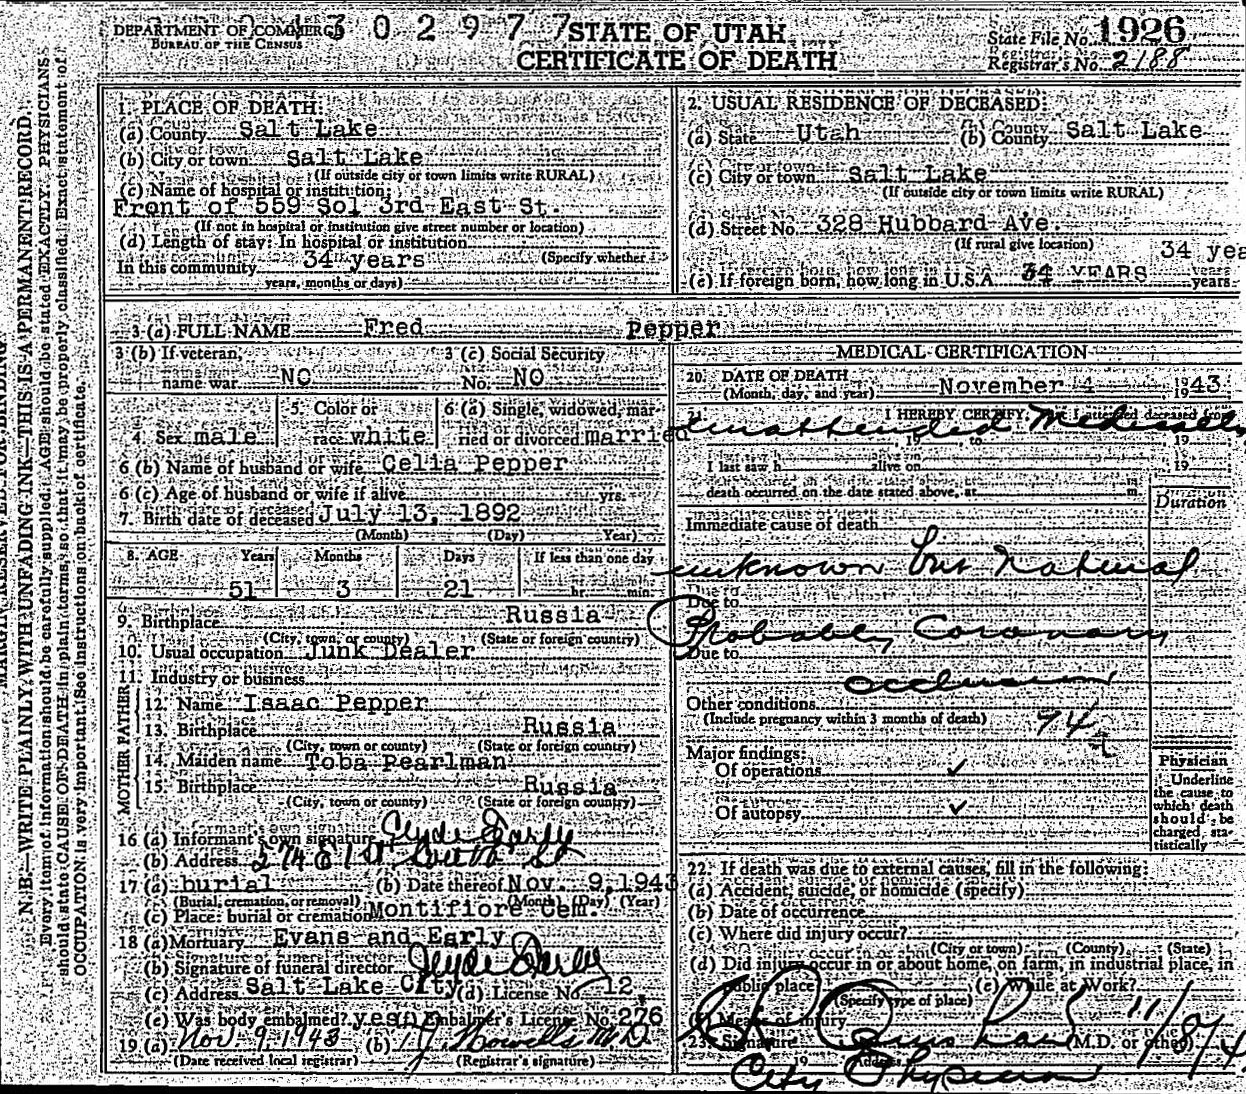 302977
DEPARTMENT OF COMMERCE
BUREAU OF THE CENSUS
STATE OF UTAH
CERTIFICATE OF DEATH
State File No. 1926
Registrar's No. 2188
N. B.—WRITE PLAINLY, WITH UNFADING INK—THIS IS A PERMANENT RECORD.
Every item of information should be carefully supplied. AGE should be stated EXACTLY. PHYSICIANS
should state CAUSE OF DEATH in plain terms, so that it may be properly classified. Exact statement of
OCCUPATION is very important. See instructions on back of certificate.
1. PLACE OF DEATH:
(a) County Salt Lake
(b) City or town Salt Lake
(If outside city or town limits write RURAL)
(c) Name of hospital or institution:
Front of 559 So. 3rd East St.
(If not in hospital or institution give street number or location)
(d) Length of stay: In hospital or institution
In this community 34 years (Specify whether
years, months or days)
2. USUAL RESIDENCE OF DECEASED:
(a) State Utah (b) County Salt Lake
(c) City or town Salt Lake
(If outside city or town limits write RURAL)
(d) Street No. 328 Hubbard Ave.
(If rural give location)
34 yea
(e) If foreign born, how long in U.S.A. 34 YEARS years.
3 (a) FULL NAME Fred Pepper
3 (b) If veteran, name war NO
3 (c) Social Security No. NO
4. Sex male
5. Color or race white
6 (a) Single, widowed, married or divorced married
6 (b) Name of husband or wife Celia Pepper
6 (c) Age of husband or wife if alive yrs.
7. Birth date of deceased July 13, 1892
(Month) (Day) Year)
8. AGE Years Months Days If less than one day
51 3 21 hr. min.
9. Birthplace Russia
(City, town, or county) (State or foreign country)
10. Usual occupation Junk Dealer
11. Industry or business
FATHER
12. Name Isaac Pepper
13. Birthplace Russia
(City, town or county) (State or foreign country)
MOTHER
14. Maiden name Toba Pearlman
15. Birthplace Russia
(City, town or county) (State or foreign country)
16 (a) Informant's own signature Clyde Early
(b) Address 574 E 1st South St
17 (a) burial (b) Date thereof Nov. 9, 1943
(Burial, cremation, or removal) (Month) (Day) (Year)
(c) Place: burial or cremation Montifiore Cem.
18 (a) Mortuary Evans and Early
(b) Signature of funeral director Clyde Early
(c) Address Salt Lake City (d) License No. 12
(e) Was body embalmed? yes Embalmer's License No. 276
19 (a) Nov-9-1943 (b) Howells M D
(Date received local registrar) (Registrar's signature)
MEDICAL CERTIFICATION
20. DATE OF DEATH
(Month, day, and year) November 4 1943
21. I HEREBY CERTIFY, That I attended deceased from
unattended Medically
, 19 to 19
I last saw h alive on , 19
death occurred on the date stated above, at m.
Duration
Immediate cause of death
unknown but Natural
Due to
Probably Coronary
Due to
occlusion
Other conditions
(Include pregnancy within 3 months of death)
94a
Major findings:
Of operations ✓
Of autopsy ✓
Physician
Underline
the cause to
which death
should be
charged sta-
tistically
22. If death was due to external causes, fill in the following:
(a) Accident, suicide, or homicide (specify)
(b) Date of occurrence
(c) Where did injury occur?
(City or town) (County) (State)
(d) Did injury occur in or about home, on farm, in industrial place, in
public place? (e) While at Work?
(Specify type of place)
Means of injury
23. Signature (M.D. or other) 11/8/4
19 Address
City Physician